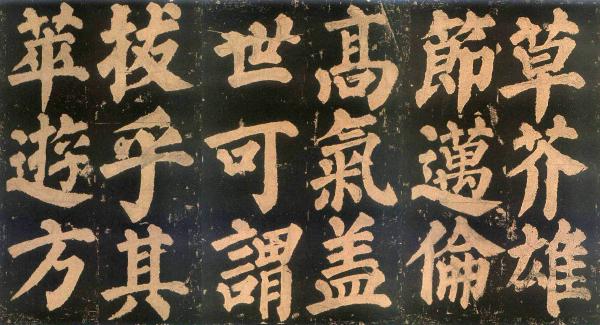 草芥雄
節邁倫
髙氣盖
世可謂
拔乎其
萃遊方